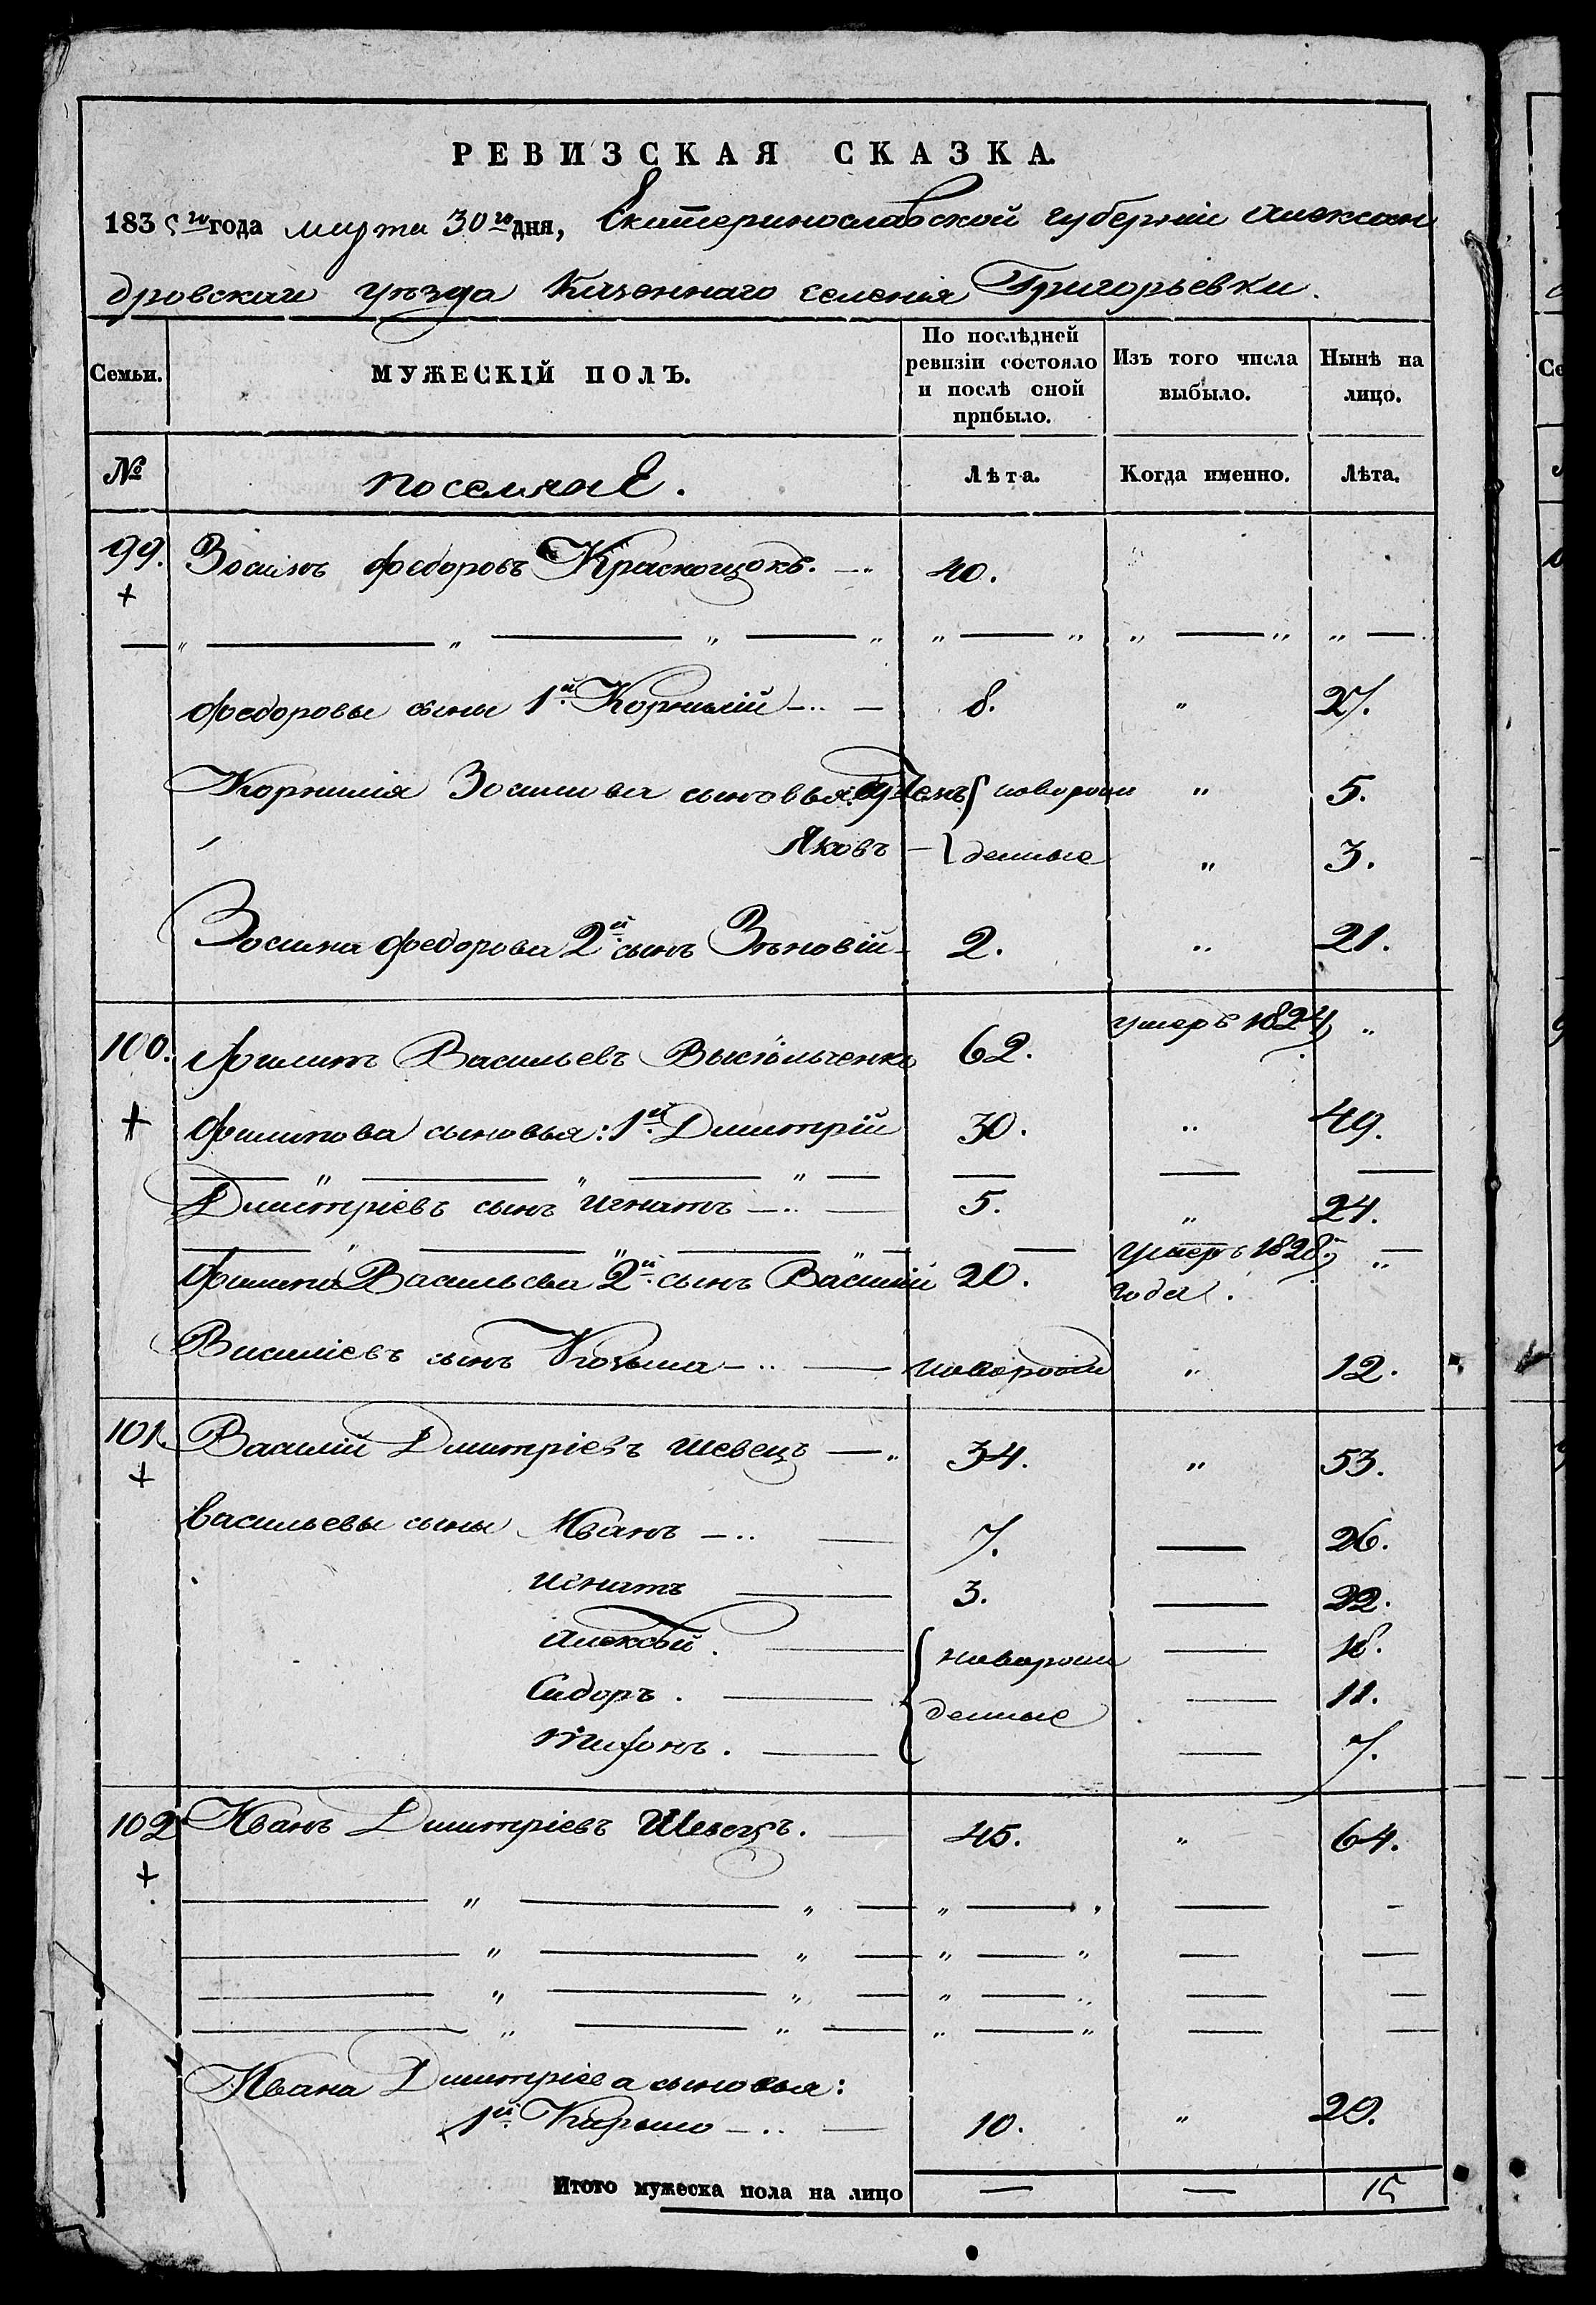 РЕВИЗСКАЯ СКАЗКА.
1835 го года марта 30 го дня, Екатеринославской губернии Александ
дровскаго уѣзда Казеннаго селенія Григорьевки.
Семьи. МУЖЕСКІЙ ПОЛЪ. По послѣдней ревизіи состояло и послѣ оной прибыло. Изъ того числа выбыло. Нынѣ на лицо.
№ Лѣта. Когда именно. Лѣта.
99. Зосимъ Федоровъ Краснощокъ. 40.
+
Федоровы сыны 1й Корнилій 8. " 27.
Корнилія Зосимова сыновья: новорож " 5.
Яковъ денные " 3.
Зосима Федорова 2й сынъ Зѣновій 2. " 21.
100. Филипъ Васильевъ 62. умеръ 1824 "
+ Филипова сыновья: 1й Димитрій 30. " 49.
Димитріевъ сынъ Игнатъ 5. " 24.
Филипа Васильева 2й сынъ Василій 20. умеръ 1828 "
года.
Василіевъ сынъ Козьма новорож " 12.
101. Василій Димитріевъ Шевецъ 34. " 53.
+
Васильевы сыны Иванъ 7. 26.
Игнатъ 3. 22.
Алексѣй. новорож 18.
Сидоръ. денные 11.
Тихонъ. 7.
102 Иванъ Димитріевъ Шевецъ. 45. " 64.
+
Ивана Димитріева сыновья:
1й 10. " 29.
Итого мужеска пола на лицо — — 15